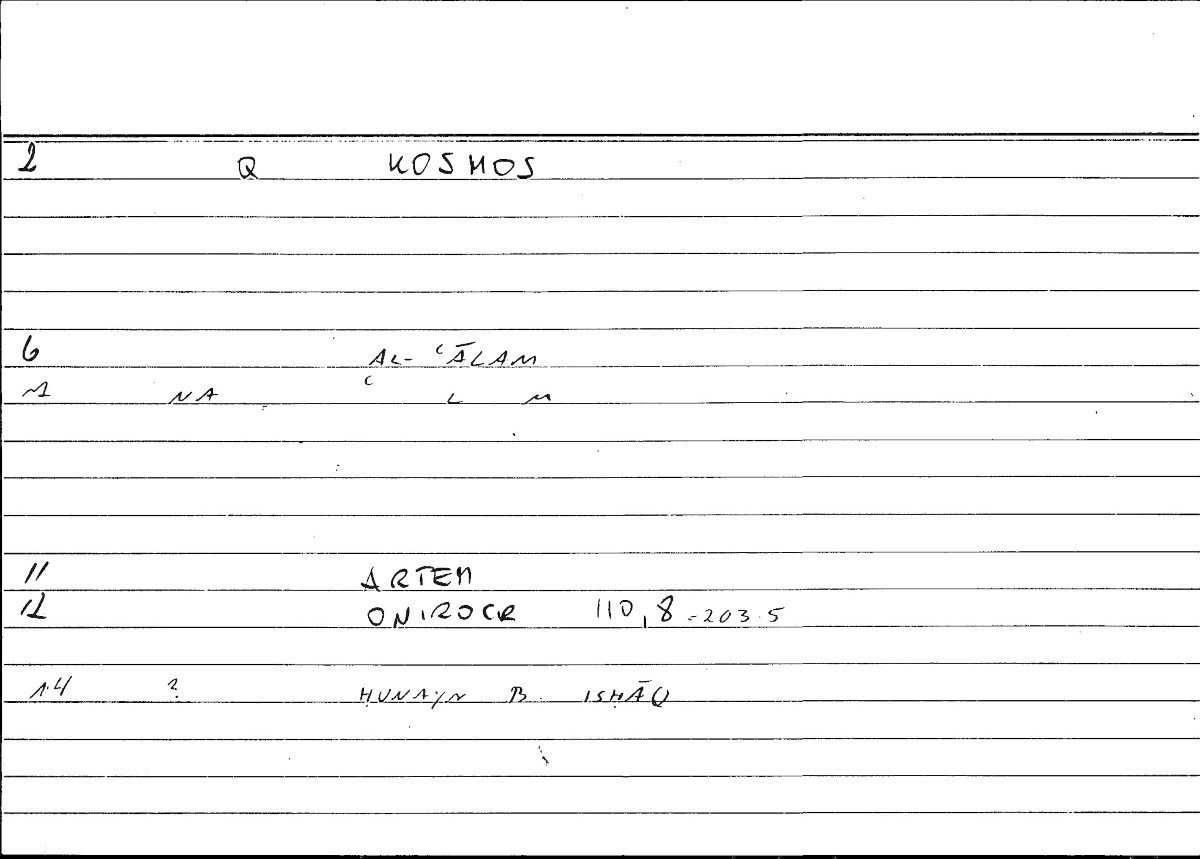 2 Q KOSMOS
6 AL- ʿĀLAM
7 NA ʿ L M
11 ARTEM
12 ONIROCR 110,8 - 203.5
14 ? ḤUNAYN B. ISḤĀQ